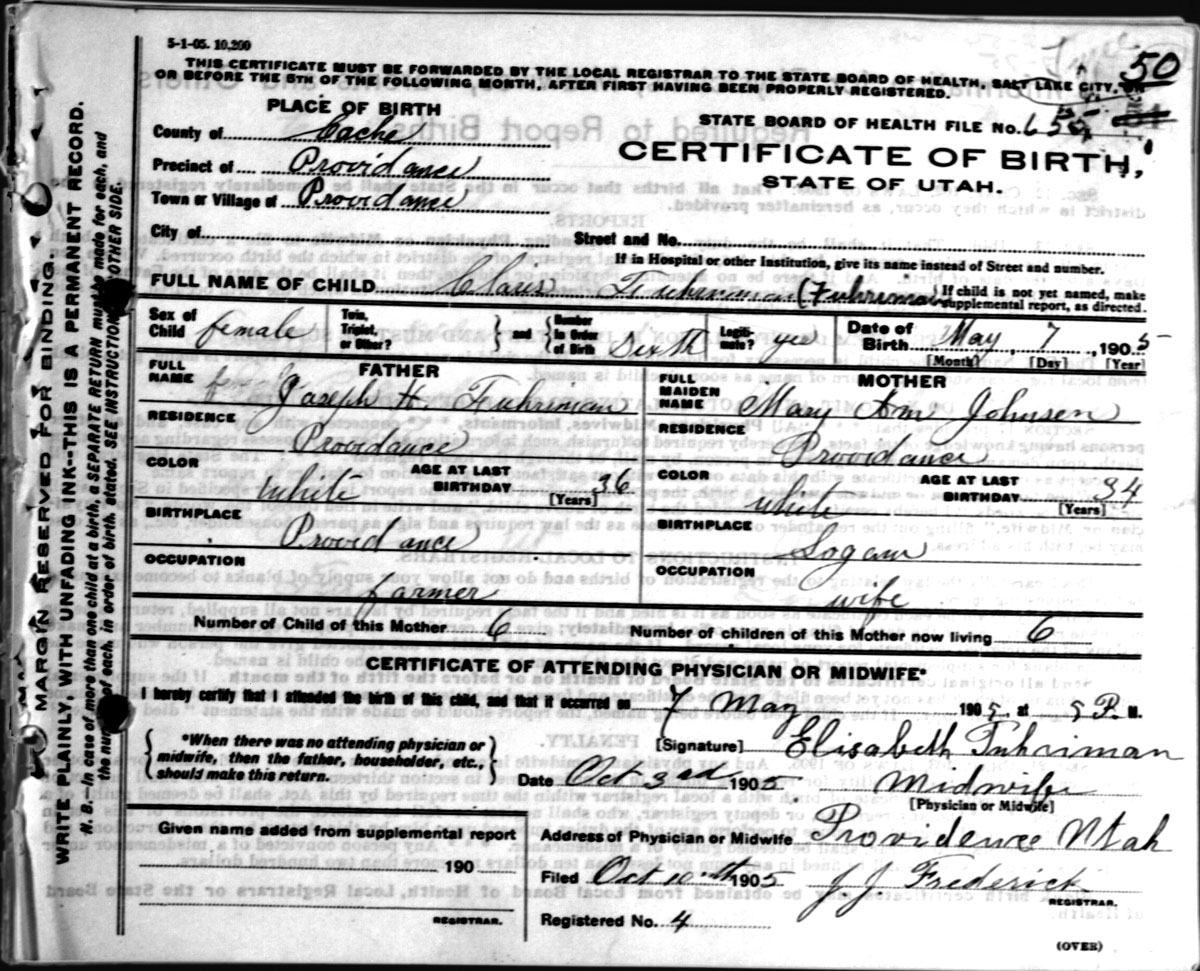 5-1-05. 10,200
50
THIS CERTIFICATE MUST BE FORWARDED BY THE LOCAL REGISTRAR TO THE STATE BOARD OF HEALTH, SALT LAKE CITY, ON
OR BEFORE THE 5TH OF THE FOLLOWING MONTH, AFTER FIRST HAVING BEEN PROPERLY REGISTERED.
PLACE OF BIRTH
County of Cache
Precinct of Providance
Town or Village of Providance
STATE BOARD OF HEALTH FILE No.
CERTIFICATE OF BIRTH,
STATE OF UTAH.
City of Street and No.
If in Hospital or other Institution, give its name instead of Street and number.
FULL NAME OF CHILD Claris Fuhrinman (Fuhriman
If child is not yet named, make
supplemental report, as directed.
Sex of Child female
Twin, Triplet, or Other?
and
Number in Order of Birth Sixth
Legiti-mate? yes
Date of Birth May 7, 1905
[Month] [Day] [Year]
FATHER
FULL NAME Joseph H. Fuhriman
RESIDENCE Providance
COLOR White AGE AT LAST BIRTHDAY 36 [Years]
BIRTHPLACE Providance
OCCUPATION Farmer
MOTHER
FULL MAIDEN NAME Mary Ann Johnsen
RESIDENCE Providance
COLOR White AGE AT LAST BIRTHDAY 34 [Years]
BIRTHPLACE Logan
OCCUPATION wife
Number of Child of this Mother 6 Number of children of this Mother now living 6
CERTIFICATE OF ATTENDING PHYSICIAN OR MIDWIFE*
I hereby certify that I attended the birth of this child, and that it occurred on 7 May 1905, at 5 P. M.
*When there was no attending physician or
midwife, then the father, householder, etc.,
should make this return.
[Signature] Elisabeth Fuhriman
Date Oct 3rd 1905 Midwife
[Physician or Midwife]
Given name added from supplemental report
190
REGISTRAR.
Address of Physician or Midwife Providence Utah
Filed Oct 10th 1905 J J Frederick
REGISTRAR.
Registered No. 4
(OVER)
MARGIN RESERVED FOR BINDING.
WRITE PLAINLY, WITH UNFADING INK--THIS IS A PERMANENT RECORD.
N. B.—In case of more than one child at a birth, a SEPARATE RETURN must be made for each, and
the number of each, in order of birth, stated. SEE INSTRUCTIONS OTHER SIDE.